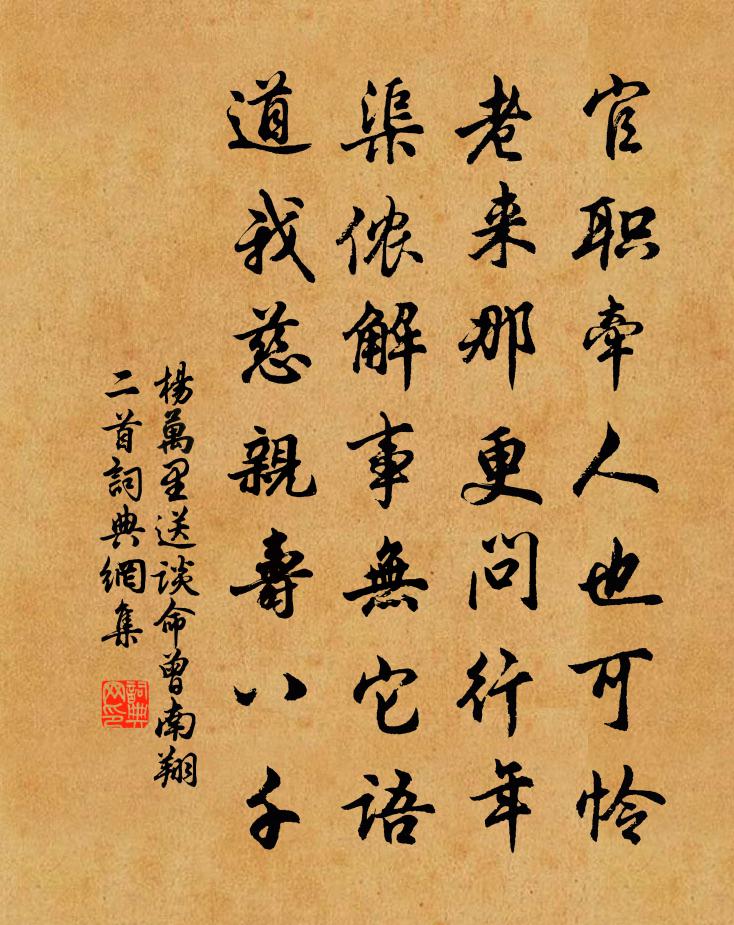 官职牵人也可怜
老来那更问行年
渠侬解事無它语
道我慈親壽八千
楊萬里送谈命曾南翔
二首詞典網集
詞典网印